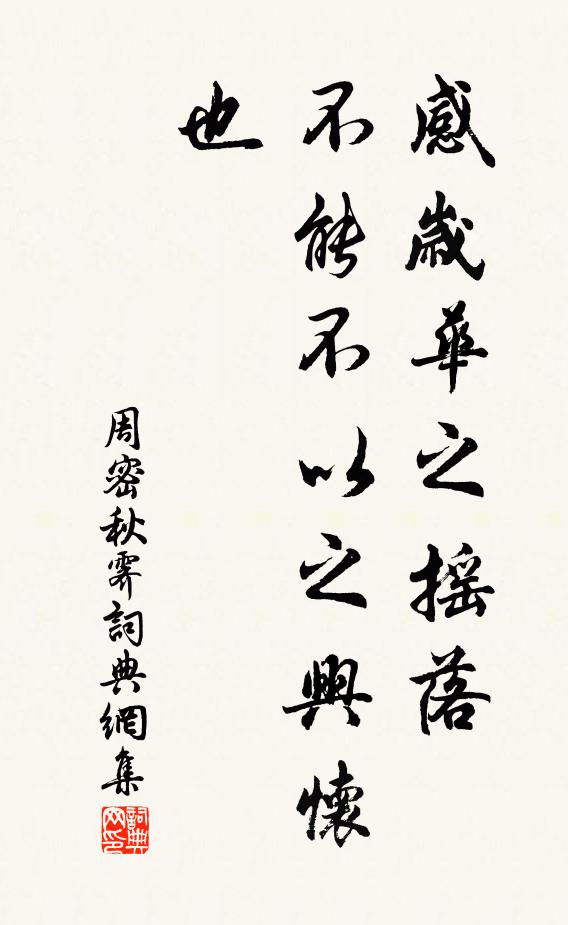 感歲華之摇落
不能不以之興懷
也
周密秋霽詞典網集
詞典网印